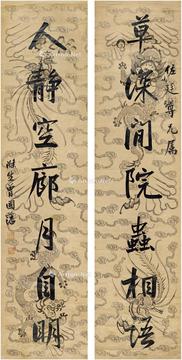 草深閒院蟲相語
伯廷尊兄屬
人靜空廊月自明
滌生曾國藩